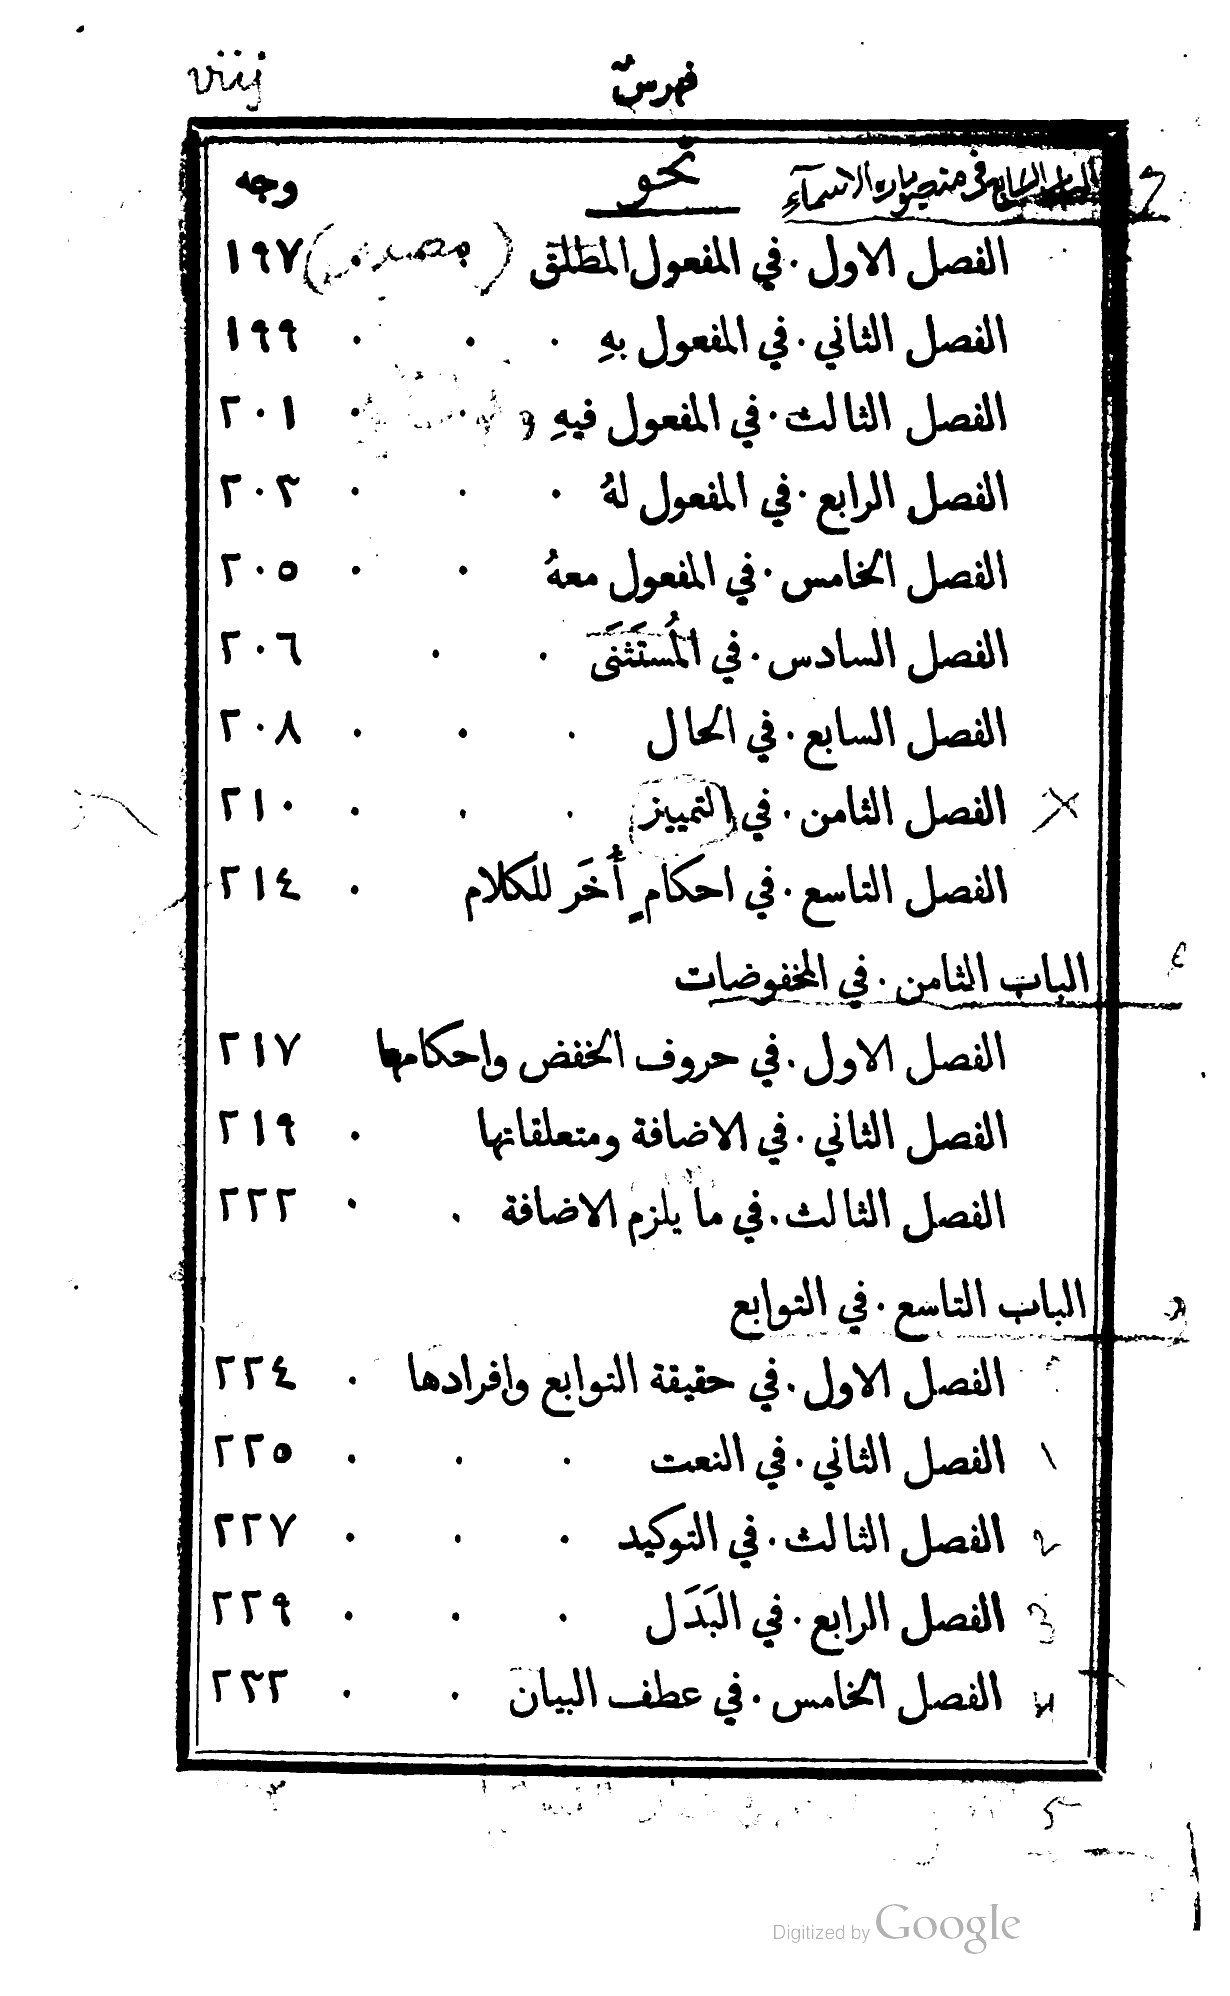 viij
فهرسٌ
وجه
نحو
الباب السابع في منصوبات الاسمآءِ
الفصل الاول . في المفعول المطلق (مصدر) ١٩٧
الفصل الثاني . في المفعول بهِ . . . ١٩٩
الفصل الثالث . في المفعول فيهِ . . ٢٠١
الفصل الرابع . في المفعول لهُ . . . ٢٠٣
الفصل الخامس . في المفعول معهُ . . ٢٠٥
الفصل السادس . في المُستَثنَى . . ٢٠٦
الفصل السابع . في الحال . . . ٢٠٨
الفصل الثامن . في التمييز . . . ٢١٠
الفصل التاسع . في احكامٍ أُخَر للكلام . ٢١٤
الباب الثامن . في المخفوضات
الفصل الاول . في حروف الخفض واحكامها ٢١٧
الفصل الثاني . في الاضافة ومتعلقاتها . ٢١٩
الفصل الثالث . في ما يلزم الاضافة . . ٢٢٢
الباب التاسع . في التوابع
الفصل الاول . في حقيقة التوابع وافرادها . ٢٢٤
١ الفصل الثاني . في النعت . . . ٢٢٥
٢ الفصل الثالث . في التوكيد . . . ٢٢٧
٣ الفصل الرابع . في البَدَل . . . ٢٢٩
٤ الفصل الخامس . في عطف البيان . . ٢٣٢
Digitized by Google